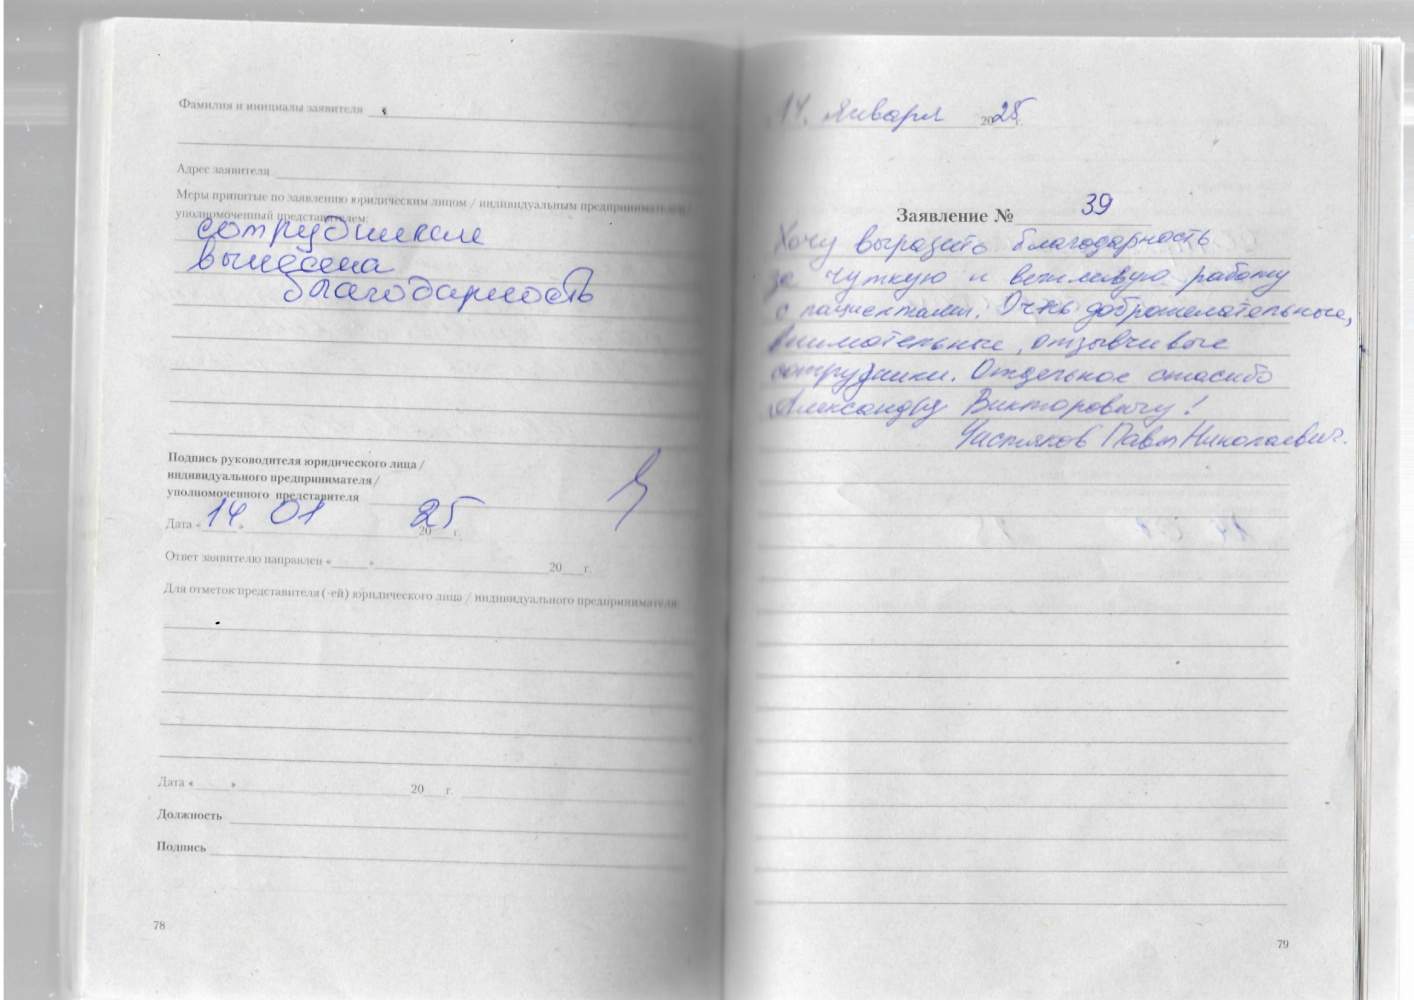 Фамилия и инициалы заявителя
Адрес заявителя
Меры принятые по заявлению юридическим лицом / индивидуальным предпринимателем /
уполномоченный представителем:
сотрудникам
вынесена
благодарность
Подпись руководителя юридического лица /
индивидуального предпринимателя /
уполномоченного представителя
Дата « 14 » 01 20 25 г.
Ответ заявителю направлен « » 20 г.
Для отметок представителя (-ей) юридического лица / индивидуального предпринимателя
Дата « » 20 г.
Должность
Подпись
78
14. Января 2025 г.
Заявление № 39
Хочу выразить благодарность
за чуткую и вежливую работу
с пациентами. Очень доброжелательные,
внимательные, отзывчивые
сотрудники. Отдельное спасибо
Александру Викторовичу!
Чистяков Павел Николаевич.
79